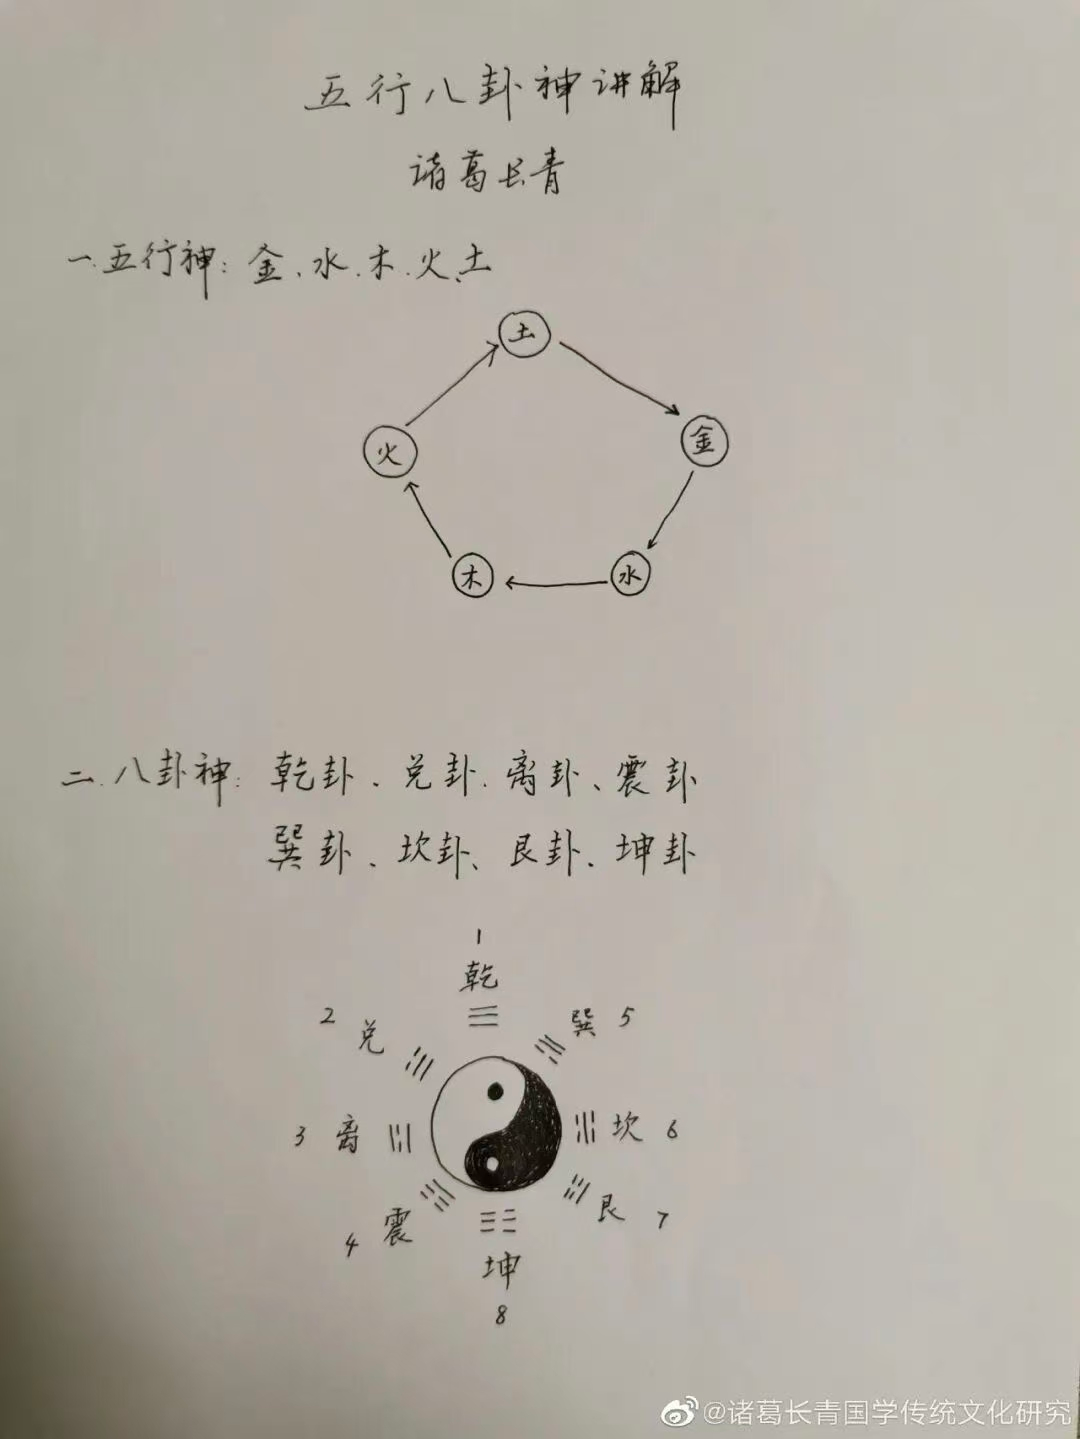 五行八卦神讲解
诸葛长青
一.五行神：金、水.木.火、土
土
金
火
木
水
二.八卦神：乾卦、兑卦.离卦、震卦
巽卦、坎卦、艮卦、坤卦
1
乾
2 兑
巽 5
3 离
坎 6
4 震
艮 7
坤
8
@诸葛长青国学传统文化研究